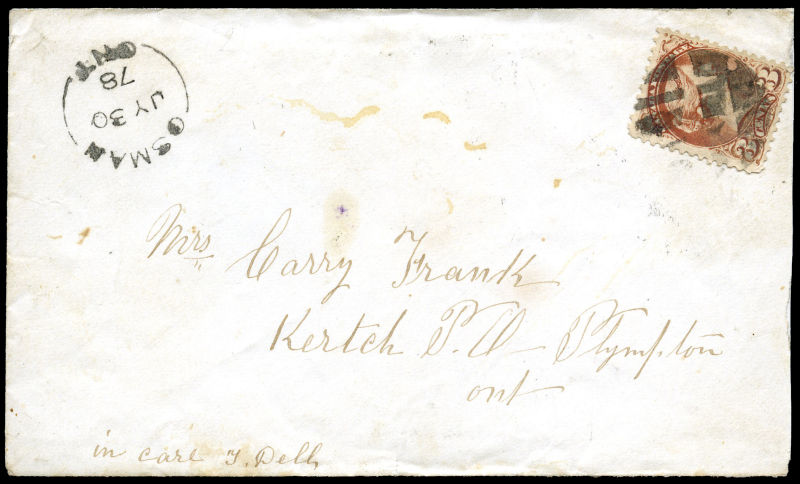 OSMAN
JY 30
78
ONT
3 CENTS 3
Mrs Carry Frank
Kertch P.O Plympton
ont
in care T. Dell